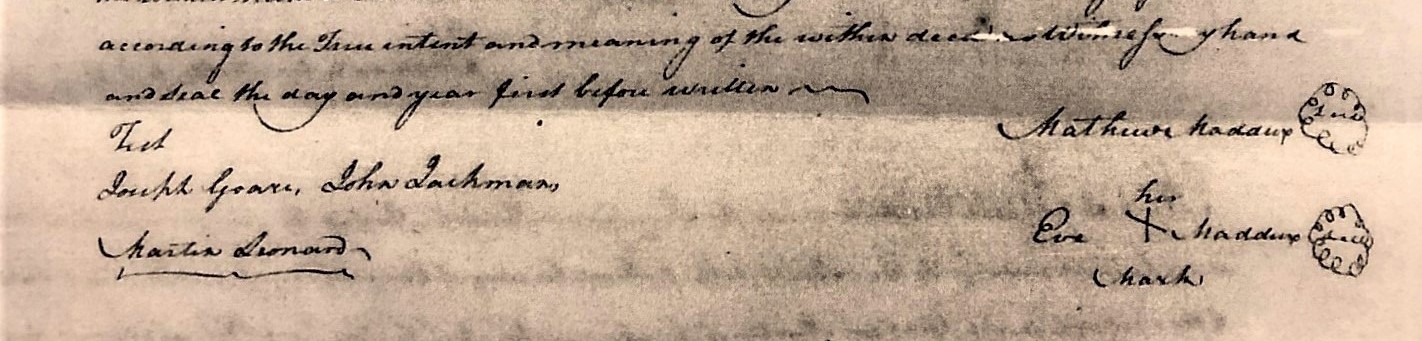 according to the True intent and meaning of the within deed Witness my hand
and seal the day and year first before written
Test
Joseph Goare, John Jackman,
Mathew Maddux Seal
her
Eve X Maddux Seal
Martin Leonard
Mark